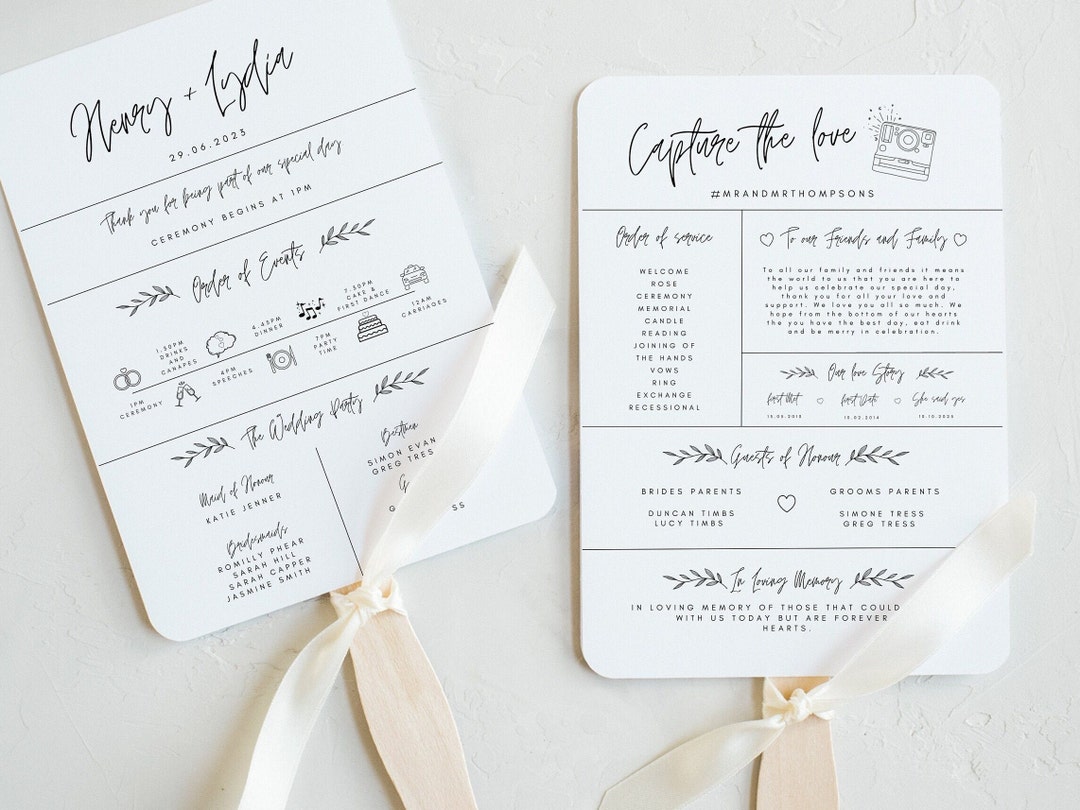 Henry + Lydia
29.06.2023
Thank you for being part of our special day
CEREMONY BEGINS AT 1PM
Order of Events
1PM
CEREMONY
1.30PM
DRINKS
AND
CANAPES
4PM
SPEECHES
4.45PM
DINNER
7PM
PARTY
TIME
7.30PM
CAKE &
FIRST DANCE
12AM
CARRIAGES
The Wedding Party
Maid of Honour
KATIE JENNER
Bridesmaids
ROMILLY PHEAR
SARAH HILL
SARAH CAPPER
JASMINE SMITH
Bestmen
SIMON EVAN
GREG TRESS
Capture the love
#MRANDMRTHOMPSONS
Order of service
WELCOME
ROSE
CEREMONY
MEMORIAL
CANDLE
READING
JOINING OF
THE HANDS
VOWS
RING
EXCHANGE
RECESSIONAL
To our Friends and Family
To all our family and friends it means
the world to us that you are here to
help us celebrate our special day,
thank you for all your love and
support. We love you all so much. We
hope from the bottom of our hearts
the you have the best day, eat drink
and be merry in celebration.
Our love Story
First Met
First Date
She said yes
Guests of Honour
BRIDES PARENTS
DUNCAN TIMBS
LUCY TIMBS
GROOMS PARENTS
SIMONE TRESS
GREG TRESS
In Loving Memory
IN LOVING MEMORY OF THOSE THAT COULD
WITH US TODAY BUT ARE FOREVER
HEARTS.